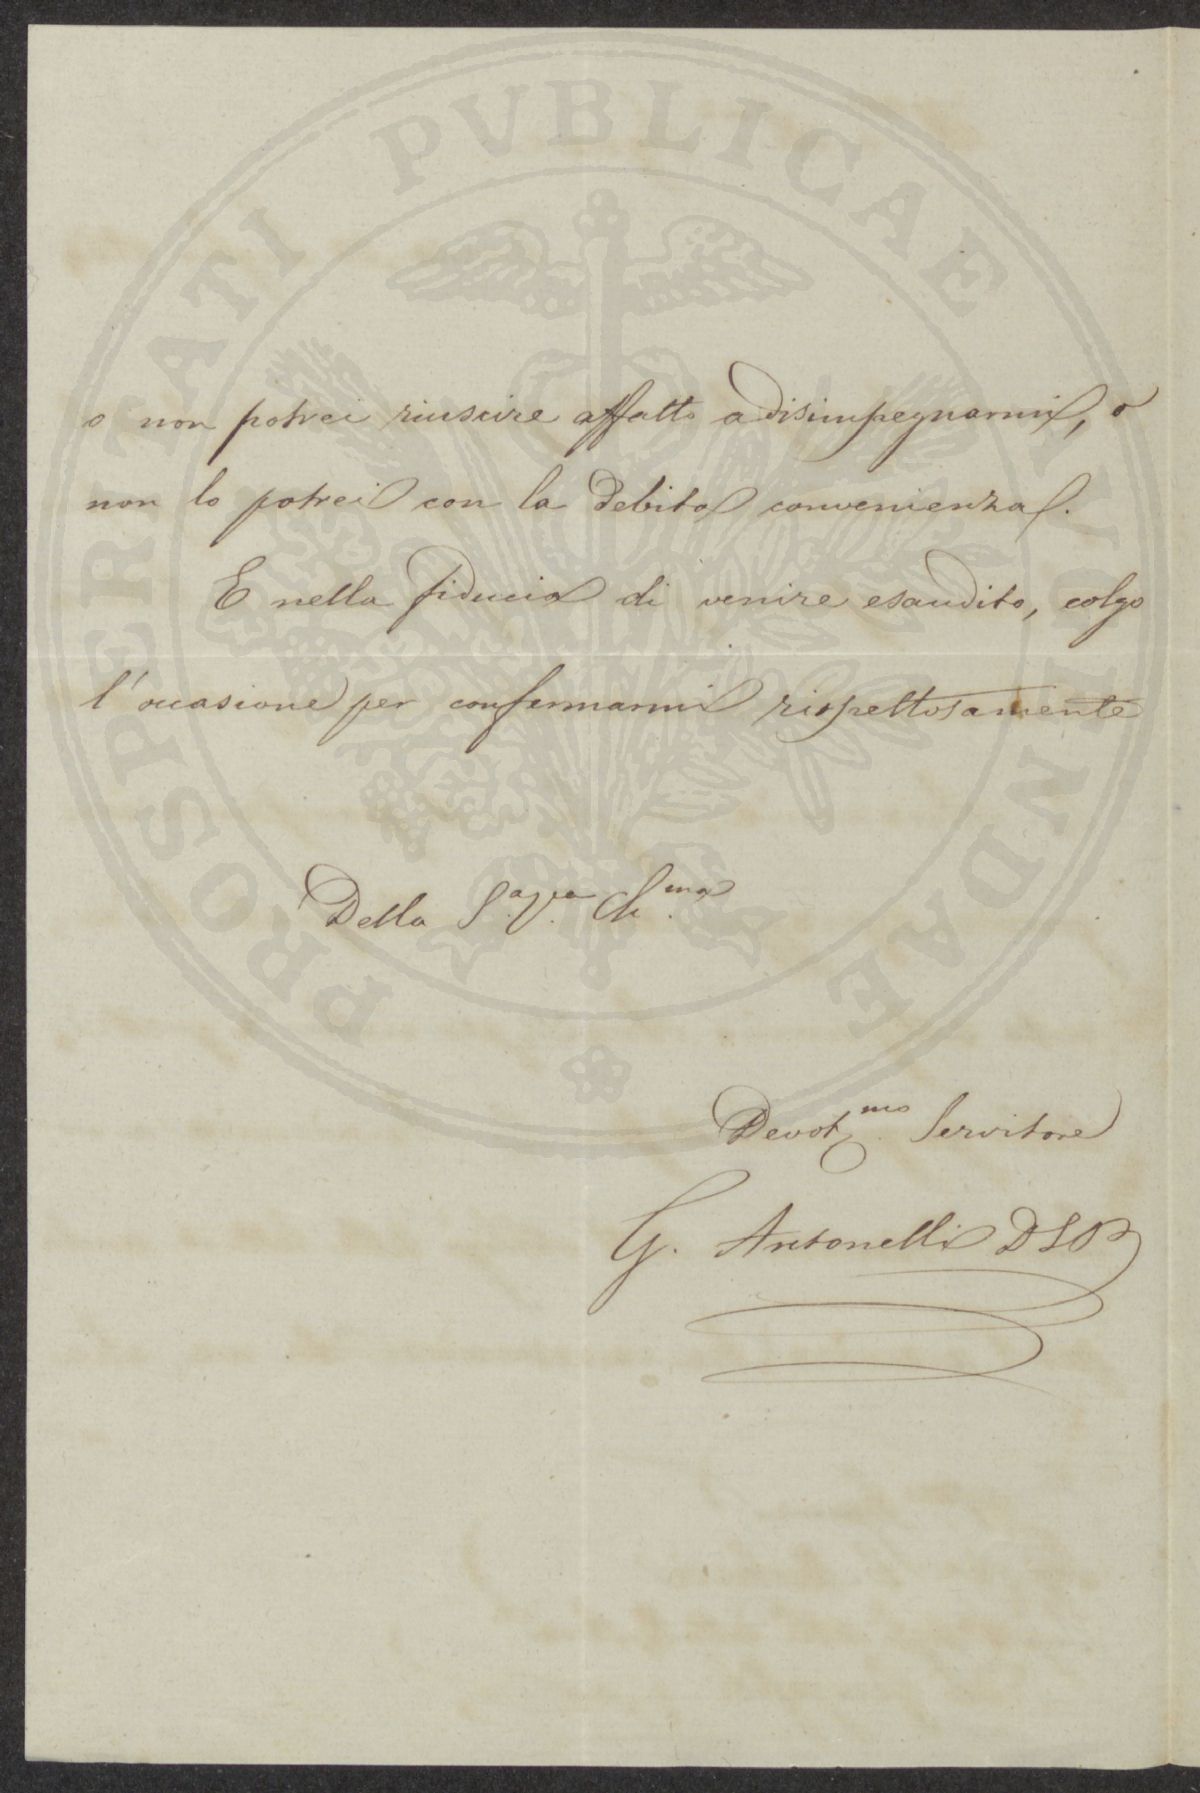 o non potrei riuscire affatto a disimpegnarmi, o
non lo potrei con la debita convenienza.
E nella fiducia di venire esaudito, colgo
l'occasione per confermarmi rispettosamente
Della S.a V.a Ch.ma
Devot.mo Servitore
G. Antonelli DSP
PROSPERITATI PVBLICAE AVGENDAE